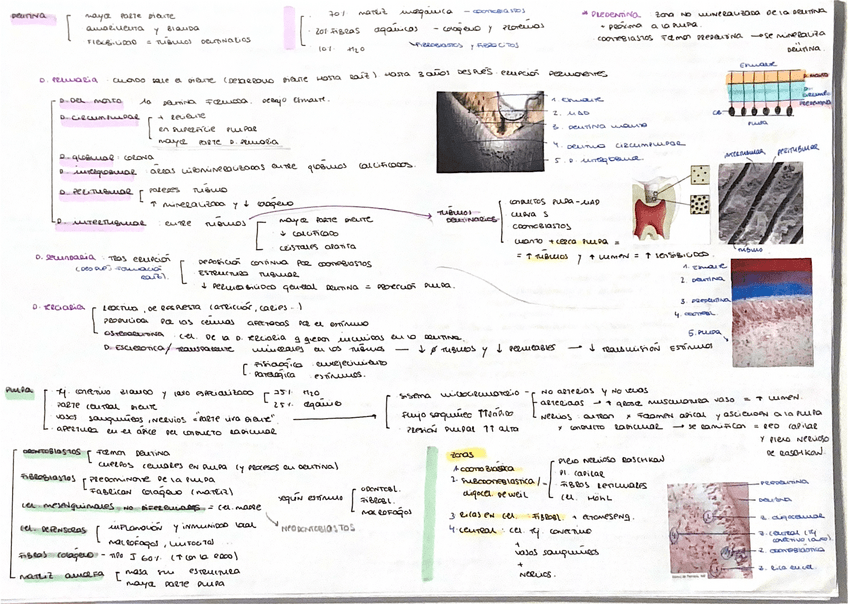 DENTINA
mayor parte diente
amarillenta y blanda
flexibilidad = túbulos dentinarios
70% matriz inorgánica - odontoblastos
20% fibras orgánicas - colágeno y proteínas
fibroblastos y fibrocitos
10% H2O
* PREDENTINA: zona no mineralizada de la dentina
+ próxima a la pulpa.
odontoblastos forman predentina → se mineraliza
dentina.
D. PRIMARIA: cuando sale el diente (desarrollo diente hasta raíz) hasta 3 años después erupción permanentes
D. DEL MANTO
1a dentina formada. debajo esmalte.
D. CIRCUMPULPAR
+ reciente
en superficie pulpar
mayor parte D. primaria
D. globular: corona
D. interglobular: áreas hipomineralizadas entre glóbulos calcificados.
D. PERITUBULAR
paredes túbulo
↑ mineralizado y ↓ colágeno
D. INTERTUBULAR: entre túbulos
mayor parte diente
↓ calcificado
cristales apatita
1. ESMALTE
2. UAD
3. DENTINA MANTO
4. DENTINA CIRCUMPULPAR
5. D. INTERGLOBULAR
ESMALTE
D. MANTO
D. CIRCUMP.
PREDENTINA
PULPA
TÚBULOS DENTINARIOS
conductos pulpa-UAD
curva S
odontoblastos
cuanto + cerca pulpa =
= ↑ túbulos y ↑ lumen = ↑ sensibilidad.
INTERTUBULAR
PERITUBULAR
TÚBULO
D. SECUNDARIA: tras erupción
deposición continua por odontoblastos
estructura tubular
↓ permeabilidad general dentina = protección pulpa.
1. ESMALTE
2. DENTINA
3. PREDENTINA
4. ODONTBL.
5. PULPA
D. TERCIARIA
reactiva, de respuesta (atrición, caries..)
producida por las células afectadas por el estímulo
osteodentina: cél. de la D. terciaria q quedan incluidas en la dentina.
D. ESCLERÓTICA / TRANSPARENTE
minerales en los túbulos — ↓ Ø túbulos y ↓ permeables → ↓ transmisión estímulos
fisiológica: envejecimiento
patológica: estímulos.
PULPA
tj. conetivo blando y laxo especializado
75% H2O
25% orgánico
parte central diente
vasos sanguíneos, nervios = "parte viva diente"
apertura en el ápice del conducto radicular
sistema microcirculatorio
- no arterias y no venas
- arteriolas → ↑ grosor musculatura vaso = ↑ lumen.
flujo sanguíneo ↑↑ rápido
presión pulpar ↑↑ alta
nervios: entran x foramen apical y ascienden a la pulpa
x conducto radicular → se ramifican = red capilar
y plexo nervioso
de Raschkow.
ODONTOBLASTOS
forman dentina
cuerpos celulares en pulpa (y procesos en dentina)
FIBROBLASTOS
predominante de la pulpa
fabrican colágeno (matriz)
CEL. MESENQUIMALES NO DIFERENCIADAS = cel. madre
según estímulo
odontobl.
fibrobl.
macrófagos
NEODONTOBLASTOS
CEL. DEFENSORAS
inflamación e inmunidad local
macrófagos, linfocitos...
FIBRAS COLÁGENO - tipo I 60% (↑ con la edad)
MATRIZ AMORFA
masa sin estructura
mayor parte pulpa
ZONAS
1. ODONTOBLÁSTICA
2. SUBODONTOBLÁSTICA / oligocel. de Weil
plexo nervioso Raschkow
pl. capilar
fibras reticulares
cel. Höhl
3. RICAS EN CEL: fibrobl. + etomeseng.
4. CENTRAL: cel. tj. conetivo
+
vasos sanguíneos
+
nervios.
PREDENTINA
DENTINA
2. oligocelular
2. odontoblástica
3. rica en cel.